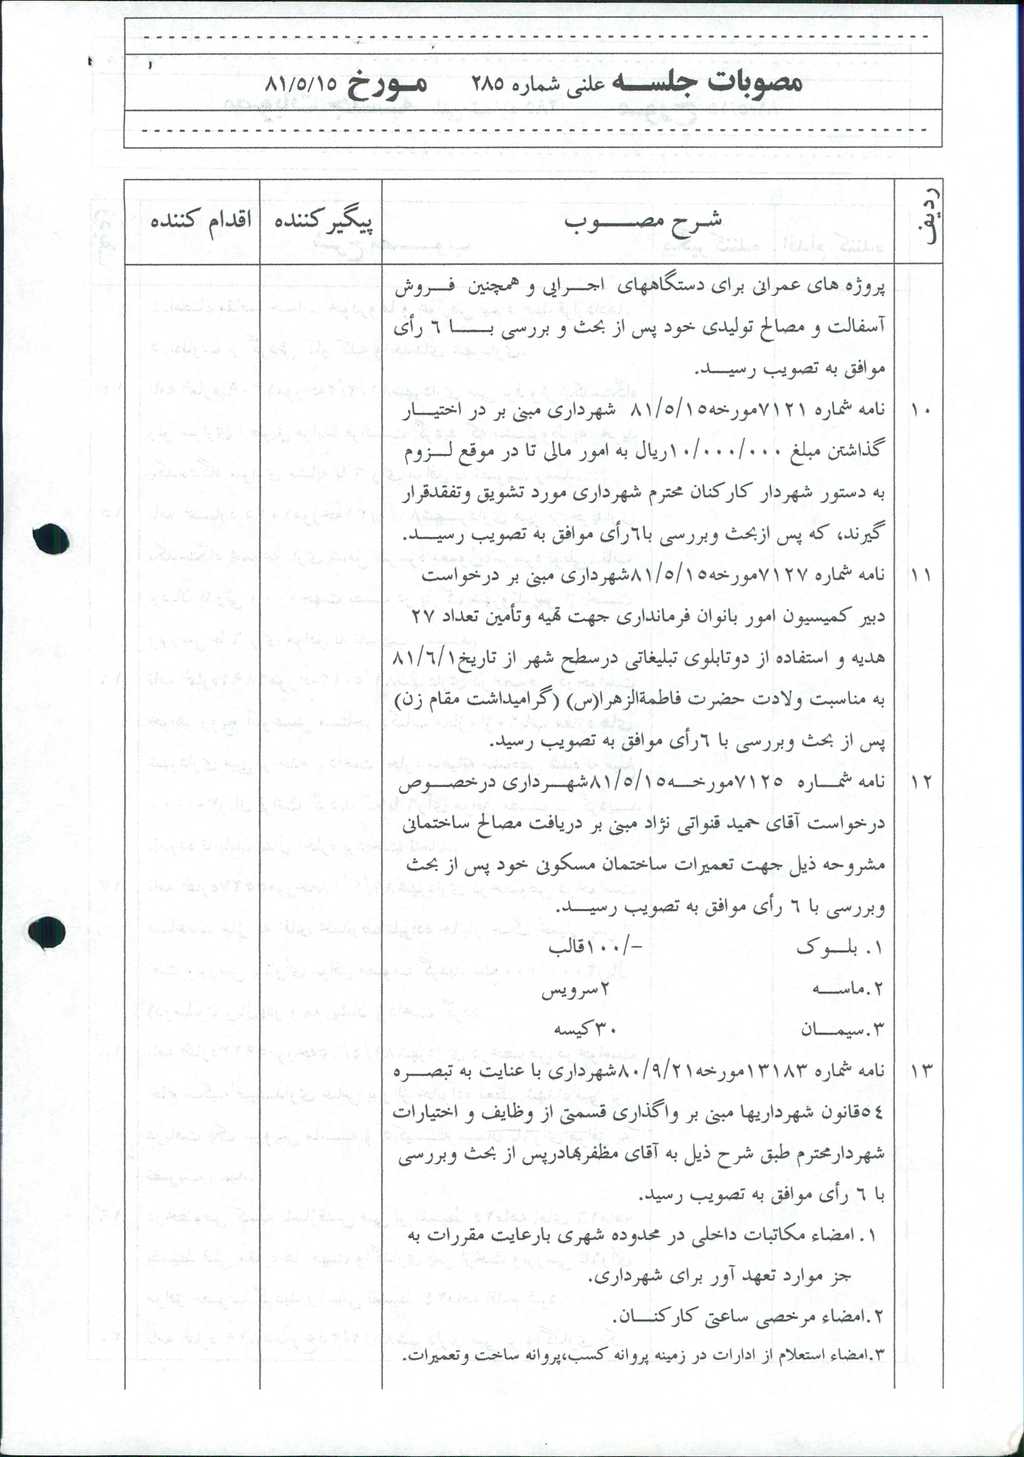 مصوبات جلسه علنی شماره ۲۸۵ مورخ ۸۱/۵/۱۵
ردیف شرح مصوب پیگیر کننده اقدام کننده
پروژه های عمرانی برای دستگاههای اجرایی و همچنین فروش
آسفالت و مصالح تولیدی خود پس از بحث و بررسی با ۶ رأی
موافق به تصویب رسید.
۱۰ نامه شماره ۷۱۲۱مورخه۸۱/۵/۱۵ شهرداری مبنی بر در اختیار
گذاشتن مبلغ ۱۰/۰۰۰/۰۰۰ریال به امور مالی تا در موقع لزوم
به دستور شهردار کارکنان محترم شهرداری مورد تشویق وتفقدقرار
گیرند، که پس ازبحث وبررسی با۶رأی موافق به تصویب رسید.
۱۱ نامه شماره ۷۱۲۷مورخه۸۱/۵/۱۵شهرداری مبنی بر درخواست
دبیر کمیسیون امور بانوان فرمانداری جهت تهیه وتأمین تعداد ۲۷
هدیه و استفاده از دوتابلوی تبلیغاتی درسطح شهر از تاریخ۸۱/۶/۱
به مناسبت ولادت حضرت فاطمةالزهرا(س) (گرامیداشت مقام زن)
پس از بحث وبررسی با ۶رأی موافق به تصویب رسید.
۱۲ نامه شماره ۷۱۲۵مورخه۸۱/۵/۱۵شهرداری درخصوص
درخواست آقای حمید قنواتی نژاد مبنی بر دریافت مصالح ساختمانی
مشروحه ذیل جهت تعمیرات ساختمان مسکونی خود پس از بحث
وبررسی با ۶ رأی موافق به تصویب رسید.
۱. بلوک ۱۰۰/-قالب
۲.ماسه ۲سرویس
۳.سیمان ۳۰کیسه
۱۳ نامه شماره ۱۳۱۸۳مورخه۸۰/۹/۲۱شهرداری با عنایت به تبصره
۵۴قانون شهرداریها مبنی بر واگذاری قسمتی از وظایف و اختیارات
شهردارمحترم طبق شرح ذیل به آقای مظفربهادرپس از بحث وبررسی
با ۶ رأی موافق به تصویب رسید.
۱. امضاء مکاتبات داخلی در محدوده شهری بارعایت مقررات به
جز موارد تعهد آور برای شهرداری.
۲.امضاء مرخصی ساعتی کارکنان.
۳.امضاء استعلام از ادارات در زمینه پروانه کسب،پروانه ساخت وتعمیرات.